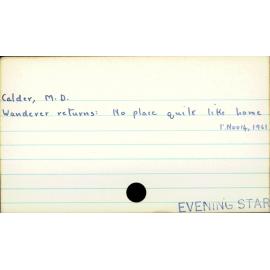 Calder, M.D.
Wanderer returns: No place quite like home
1 Nov 14, 1961
EVENING STAR